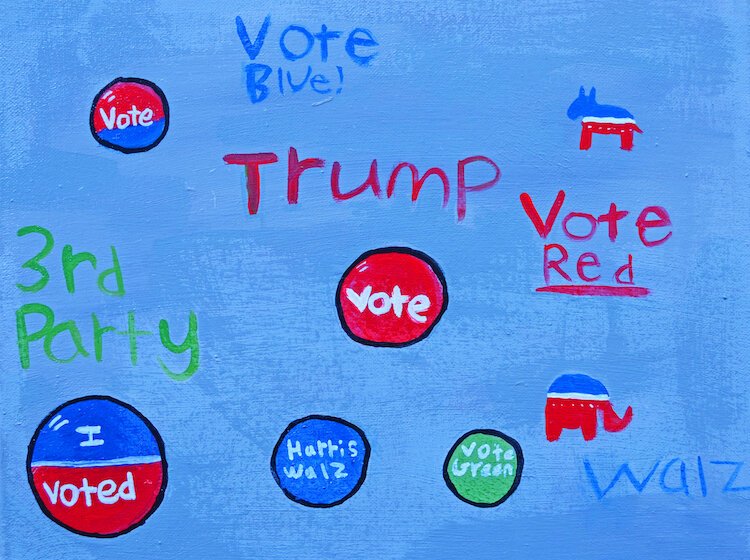 Vote
Blue!
Vote
Trump
Vote
Red
3rd
Party
Vote
I
Voted
Harris
Walz
Vote
Green
Walz